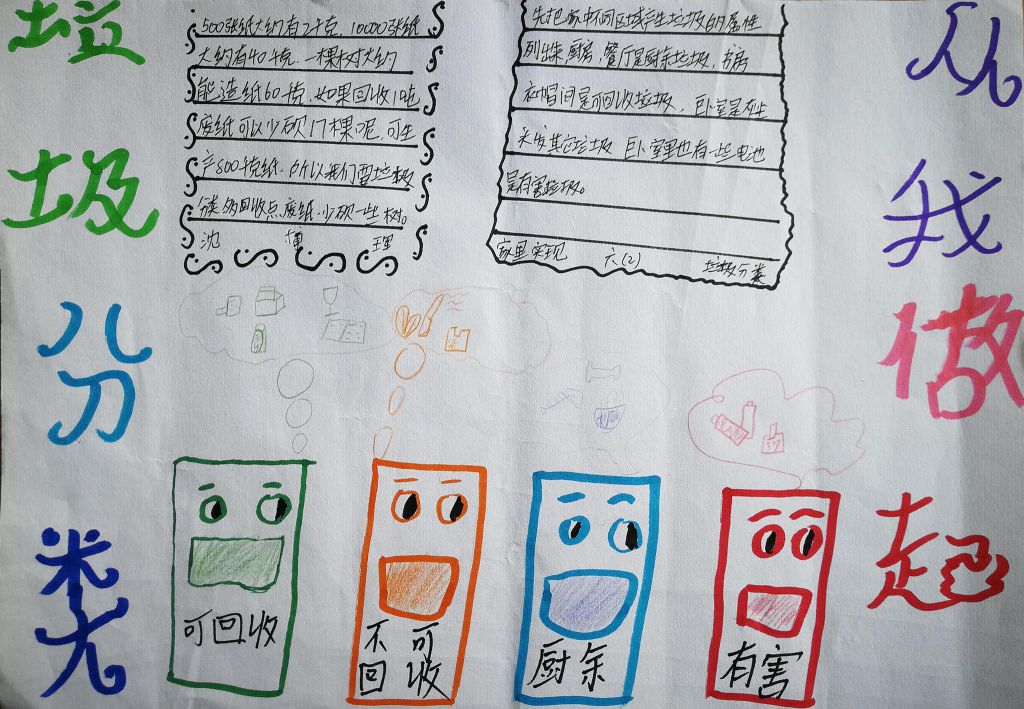 垃圾分类
从我做起
500张纸大约有2千克，10000张纸
大约有40千克，一棵树大约
能造纸60千克，如果回收1吨
废纸可以少砍17棵呢，可生
产800千克纸，所以我们要垃圾
分类多回收点废纸，少砍一些树。
沈 理
先把家中不同区域产生垃圾的属性
列出来 厨房，餐厅是厨余垃圾，书房
衣帽间是可回收垃圾，卧室是
其它垃圾 卧室里也有一些电池
是有害垃圾。
家里实现 六(2) 垃圾分类
可回收
不可
回收
厨余
有害